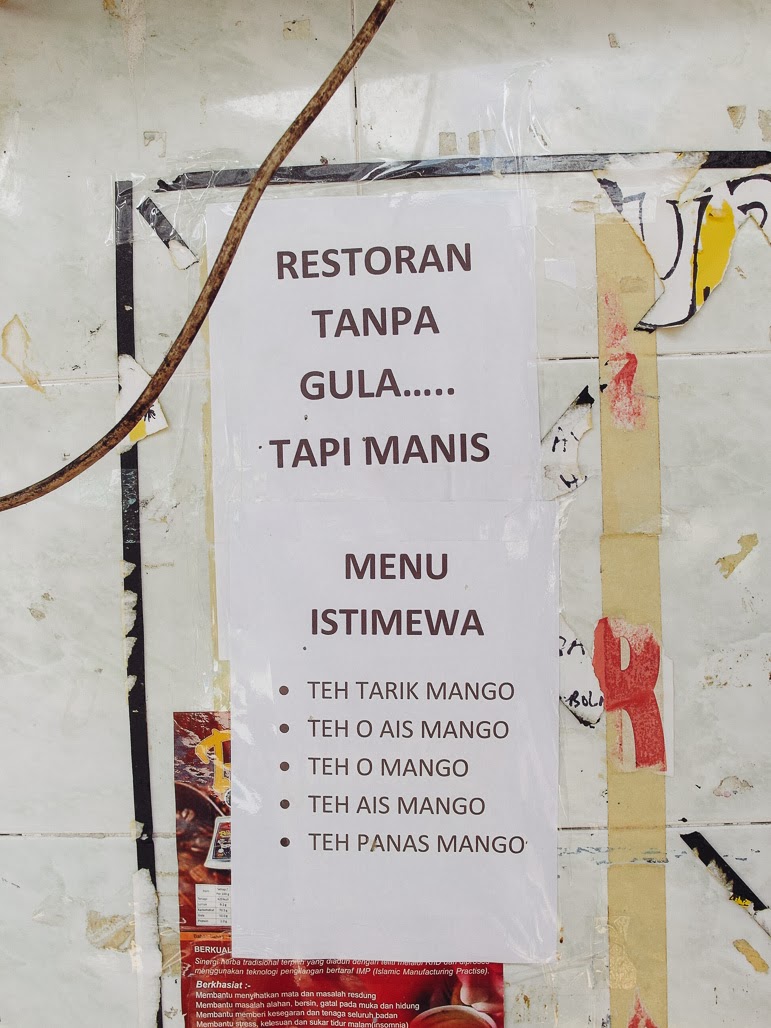 RESTORAN
TANPA
GULA.....
TAPI MANIS
MENU
ISTIMEWA
• TEH TARIK MANGO
• TEH O AIS MANGO
• TEH O MANGO
• TEH AIS MANGO
• TEH PANAS MANGO
R
BOLI
BERKUAL
Sinergi herba tradisional terpilih yang diadun dengan teliti melalui R&D dan diproses
menggunakan teknologi pengilangan bertaraf IMP (Islamic Manufacturing Practise).
Berkhasiat :-
Membantu menyihatkan mata dan masalah resdung
Membantu masalah alahan, bersin, gatal pada muka dan hidung
Membantu memberi kesegaran dan tenaga seluruh badan
Membantu stress, kelesuan dan sukar tidur malam(insomnia)